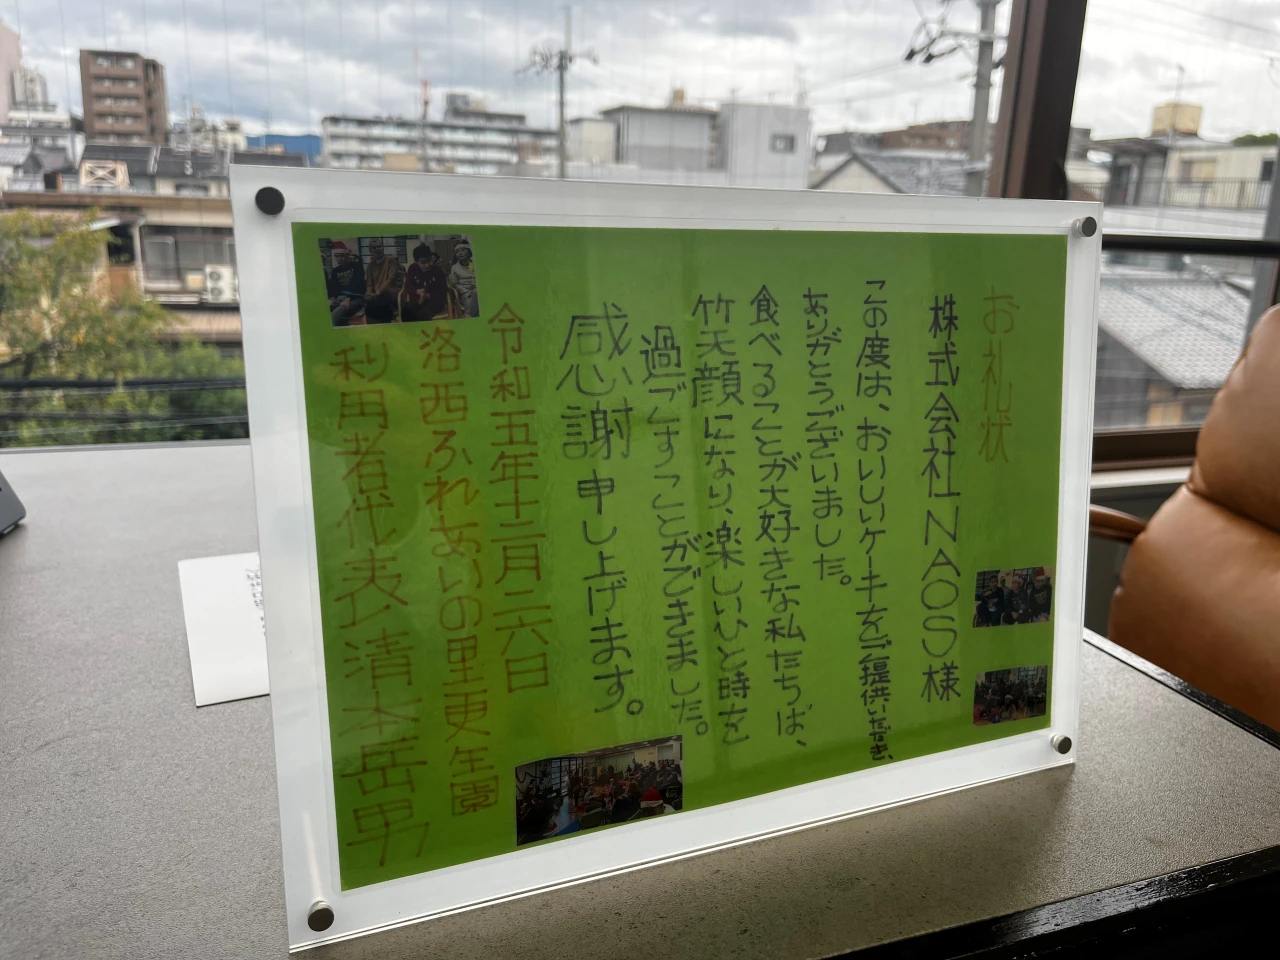 お礼状
株式会社NAOS様
この度は、おいしいケーキをご提供いただき、
ありがとうございました。
食べることが大好きな私たちは、
笑顔になり、楽しいひと時を
過ごすことができました。
感謝申し上げます。
令和五年十二月二六日
洛西ふれあいの里更生園
利用者代表 清本岳男